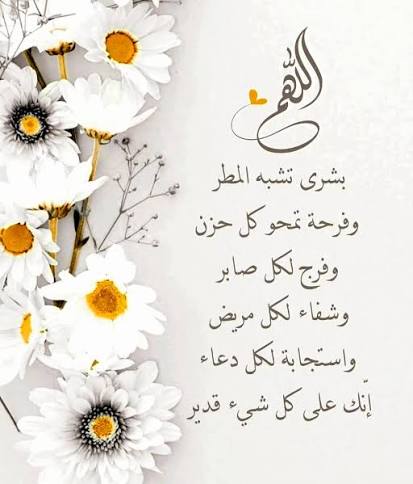 اللهم
بشرى تشبه المطر
وفرحة تمحو كل حزن
وفرج لكل صابر
وشفاء لكل مريض
واستجابة لكل دعاء
إنّك على كل شيء قدير